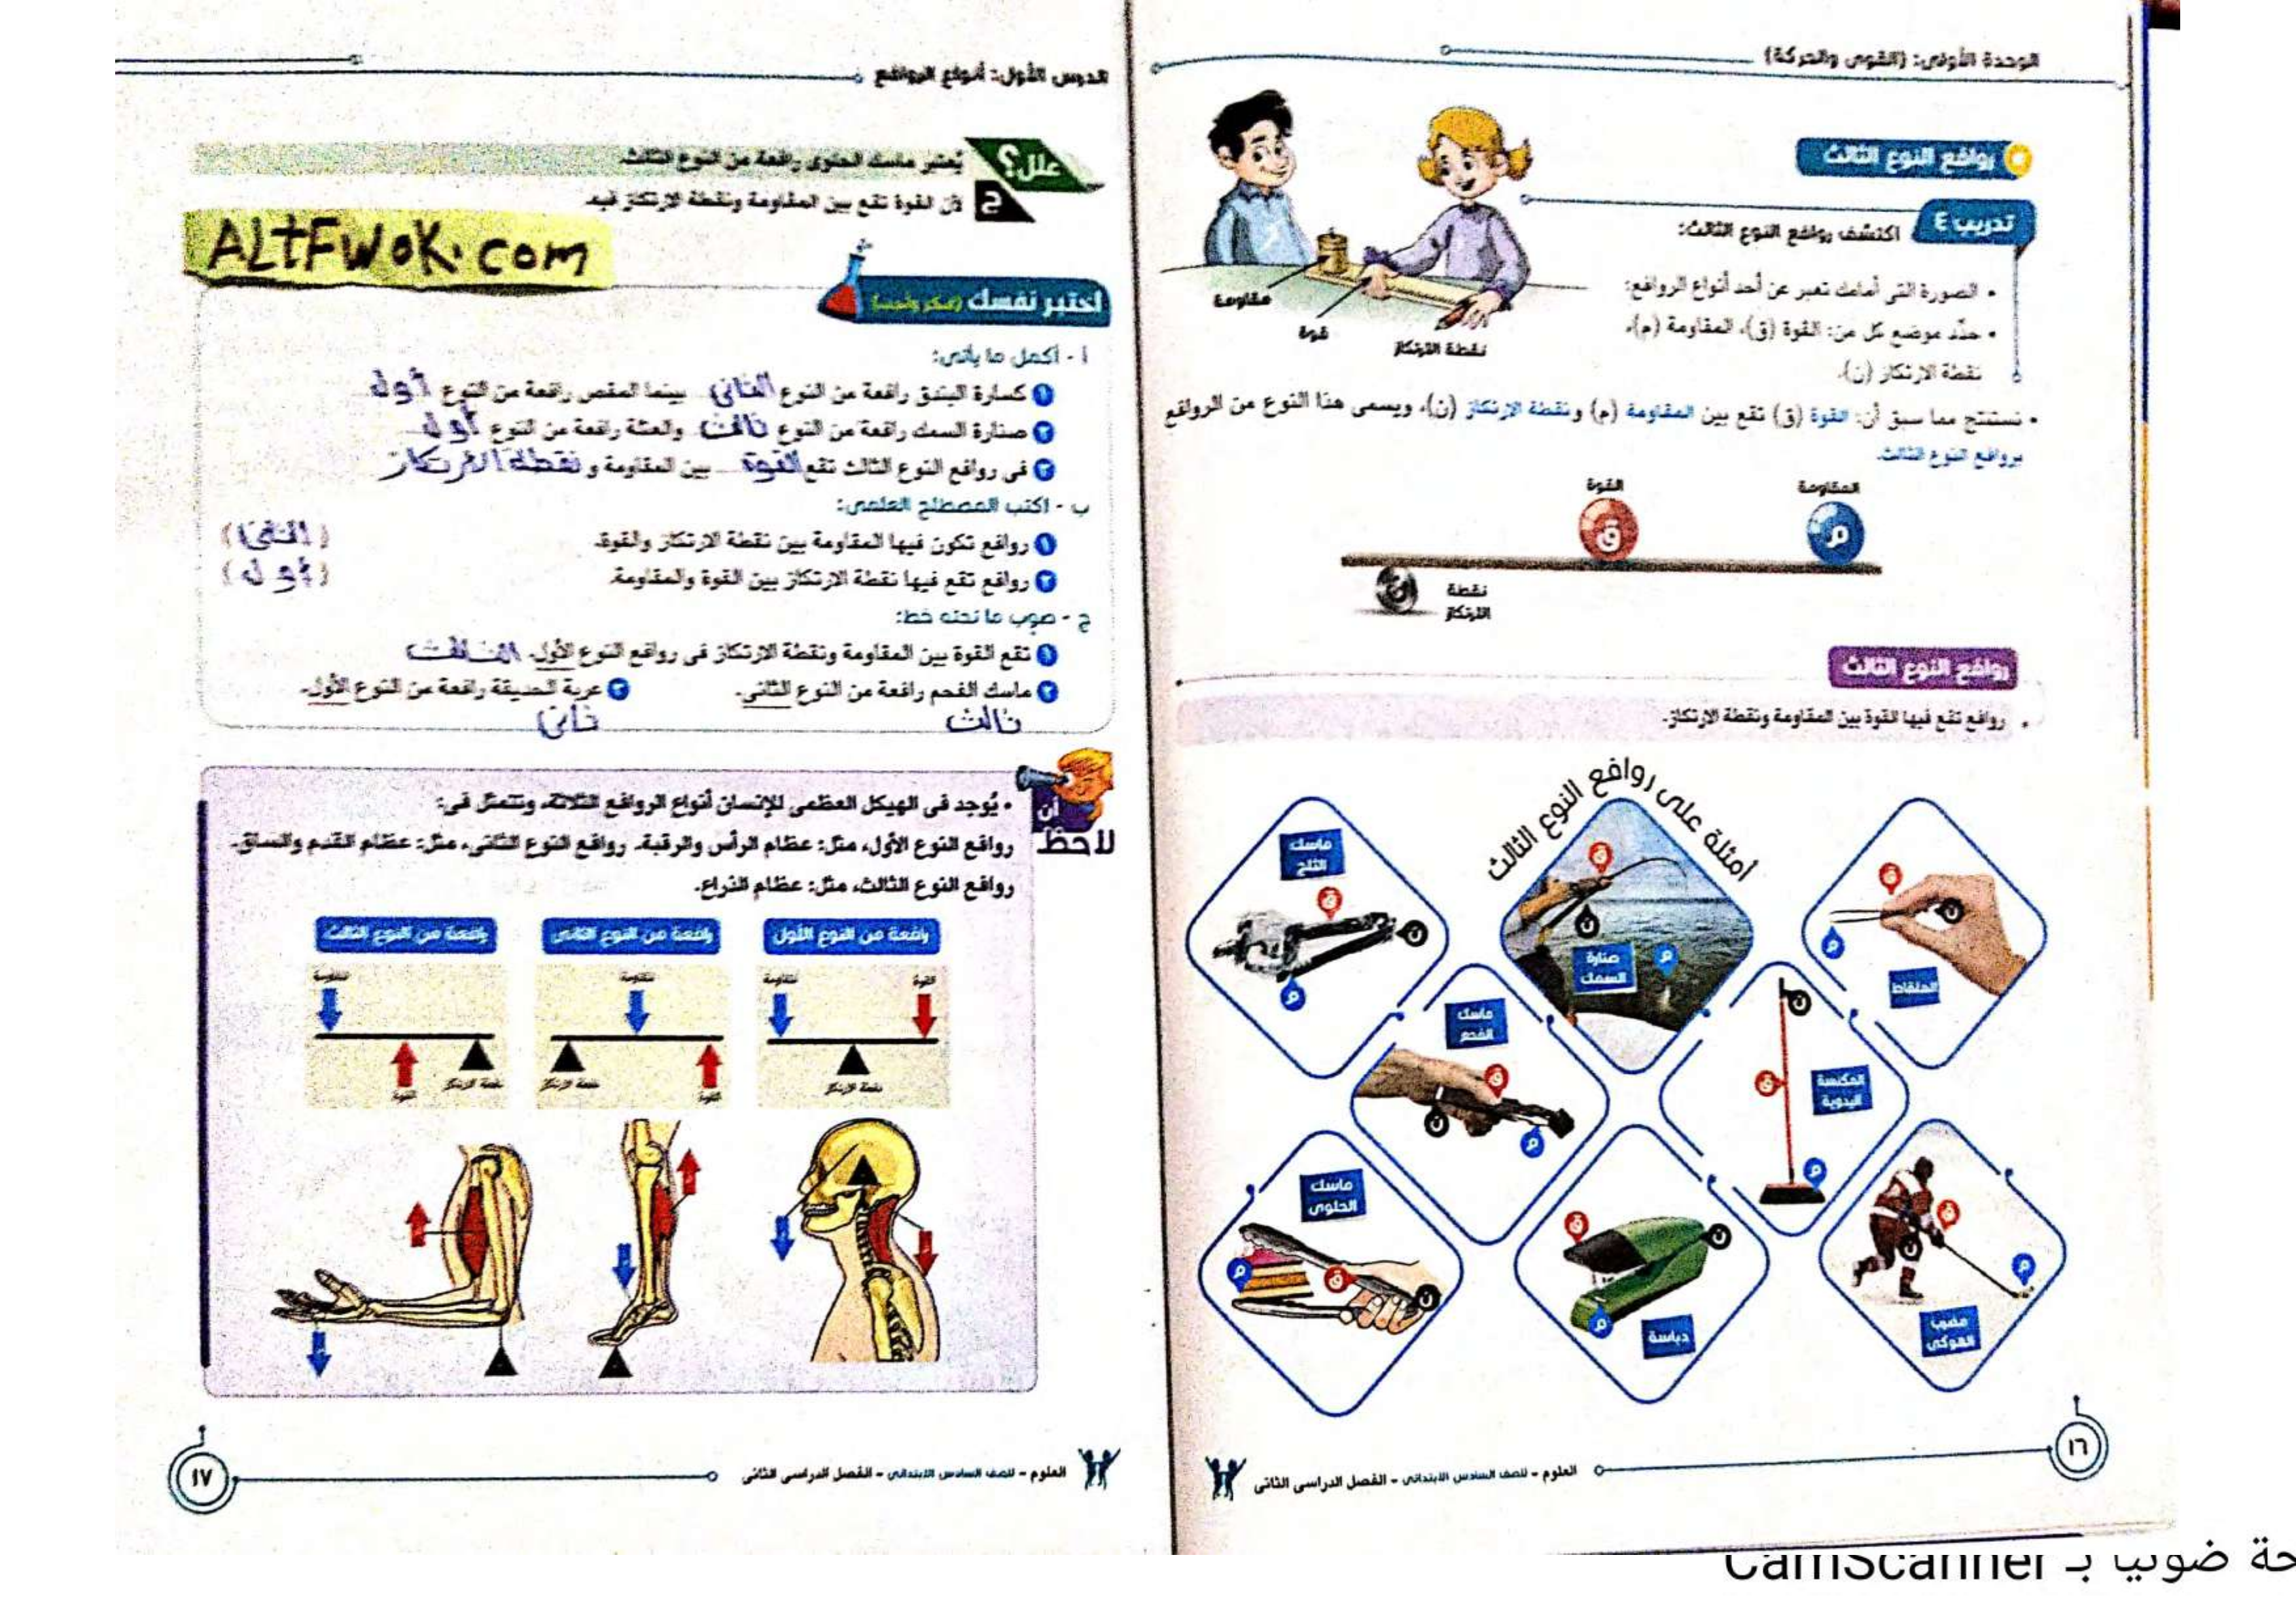 الوحدة الأولى: (القوى والحركة)
روافع النوع الثالث
تدريب ٤
اكتشف روافع النوع الثالث:
• الصورة التى أمامك تعبر عن أحد أنواع الروافع:
• حدِّد موضع كل من: القوة (ق)، المقاومة (م)،
نقطة الارتكاز (ن).
مقاومة
قوة
نقطة الارتكاز
• نستنتج مما سبق أن: القوة (ق) تقع بين المقاومة (م) ونقطة الارتكاز (ن)، ويسمى هذا النوع من الروافع
بروافع النوع الثالث.
المقاومة
القوة
م
ق
ن
نقطة
الارتكاز
روافع النوع الثالث
• روافع تقع فيها القوة بين المقاومة ونقطة الارتكاز.
أمثلة على روافع النوع الثالث
الملقاط
ق
ن
م
صنارة
السمك
ق
ن
م
ماسك
الثلج
ق
ن
م
المكنسة
اليدوية
ن
ق
م
ماسك
الفحم
ق
ن
م
مضرب
الهوكى
ق
ن
م
دباسة
ق
ن
م
ماسك
الحلوى
م
ق
ن
١٦
العلوم - للصف السادس الابتدائى - الفصل الدراسى الثانى
الدرس الأول: أنواع الروافع
علل؟
يُعتبر ماسك الحلوى رافعة من النوع الثالث.
ج
لأن القوة تقع بين المقاومة ونقطة الارتكاز فيه.
ALtFwoK.com
اختبر نفسك (فكر وأجب)
أ - أكمل ما يأتى:
١ كسارة البندق رافعة من النوع الثانى بينما المقص رافعة من النوع أول
٢ صنارة السمك رافعة من النوع ثالث والعتلة رافعة من النوع أول
٣ فى روافع النوع الثالث تقع القوة بين المقاومة و نقطة الارتكاز
ب - اكتب المصطلح العلمى:
١ روافع تكون فيها المقاومة بين نقطة الارتكاز والقوة. (الثانى)
٢ روافع تقع فيها نقطة الارتكاز بين القوة والمقاومة. (أول)
ج - صوب ما تحته خط:
١ تقع القوة بين المقاومة ونقطة الارتكاز فى روافع النوع الأول. الثالث
٢ ماسك الفحم رافعة من النوع الثانى. ٣ عربة الحديقة رافعة من النوع الأول.
ثالث ثانى
لاحظ أن
• يُوجد فى الهيكل العظمى للإنسان أنواع الروافع الثلاثة، وتتمثل فى:
روافع النوع الأول، مثل: عظام الرأس والرقبة. روافع النوع الثانى، مثل: عظام القدم والساق.
روافع النوع الثالث، مثل: عظام الذراع.
رافعة من النوع الأول
رافعة من النوع الثانى
رافعة من النوع الثالث
القوة
مقاومة
نقطة الارتكاز
مقاومة
القوة
نقطة الارتكاز
مقاومة
القوة
نقطة الارتكاز
العلوم - للصف السادس الابتدائى - الفصل الدراسى الثانى
١٧
حة ضوئيا بـ CamScanner